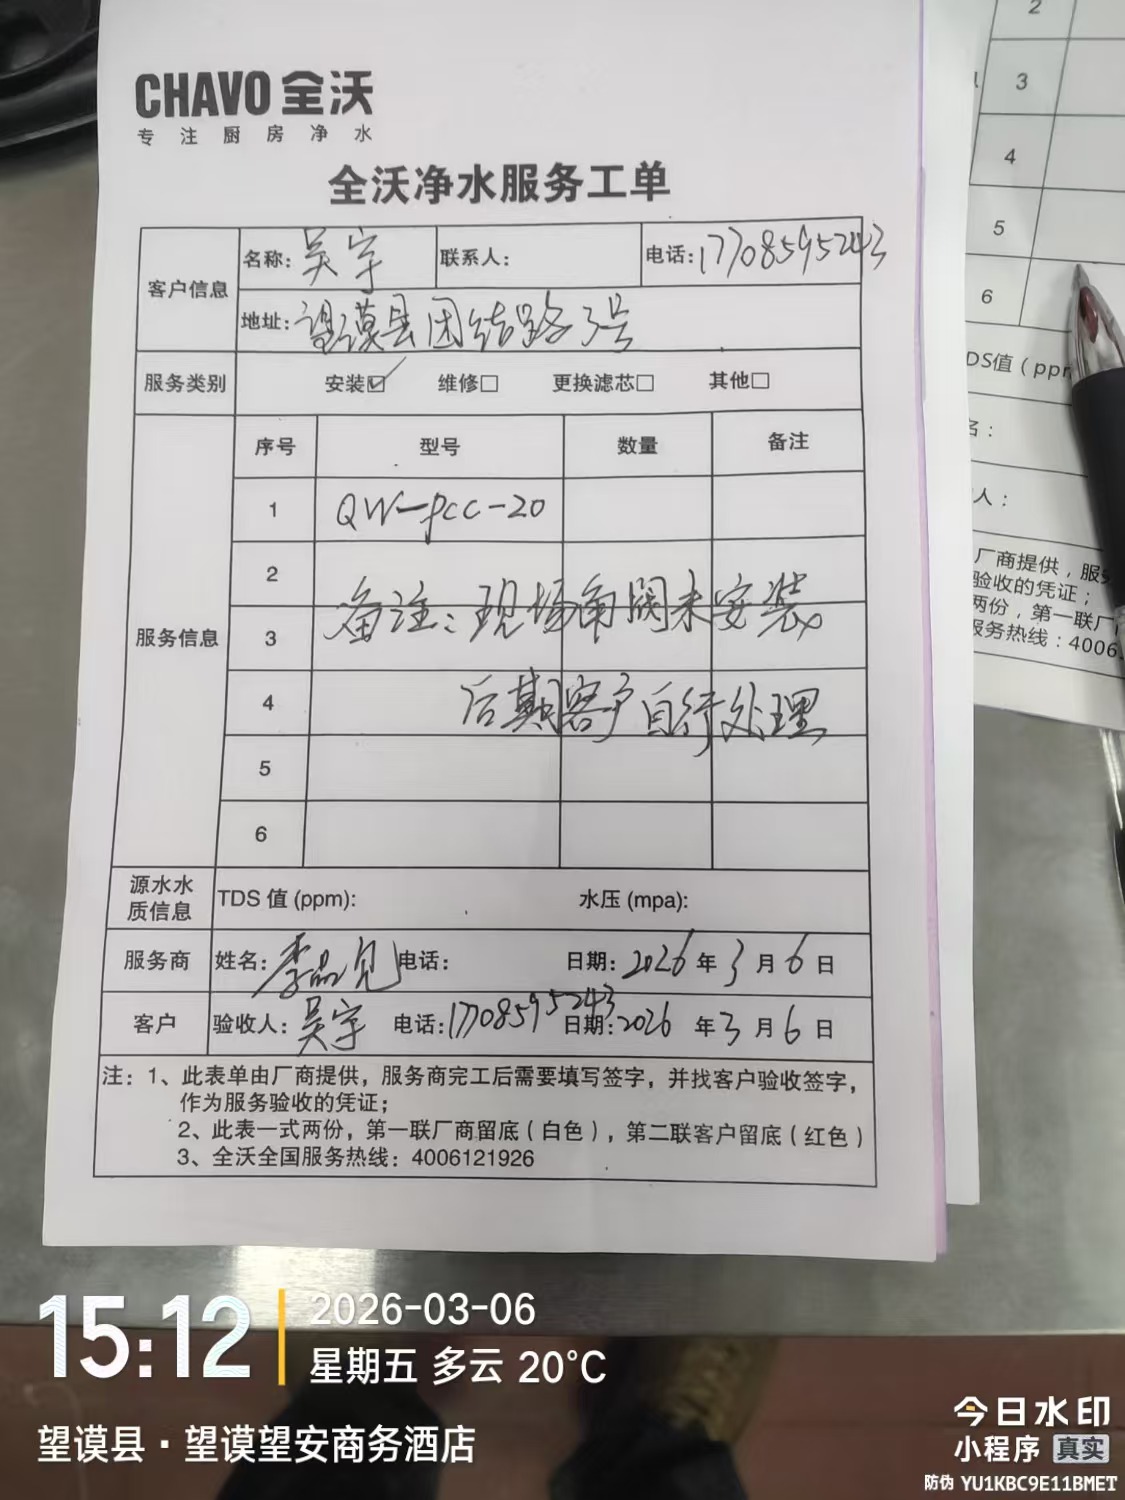 CHAVO 全沃
专注厨房净水
全沃净水服务工单
客户信息 名称: 吴宇 联系人: 电话: 17708595243
地址: 望谟县团结路3号
服务类别 安装☑ 维修□ 更换滤芯□ 其他□
服务信息 序号 型号 数量 备注
1 QW-pcc-20
2
备注: 现场角阀未安装。
3
4 后期客户自行处理
5
6
源水水质信息 TDS 值 (ppm): 水压 (mpa):
服务商 姓名: 李品见 电话: 日期: 2026 年 3 月 6 日
客户 验收人: 吴宇 电话: 17708595243 日期: 2026 年 3 月 6 日
注: 1、此表单由厂商提供，服务商完工后需要填写签字，并找客户验收签字，
作为服务验收的凭证；
2、此表一式两份，第一联厂商留底（白色），第二联客户留底（红色）
3、全沃全国服务热线：4006121926
2
3
4
5
6
DS值（ppm
名：
人：
厂商提供，服务
验收的凭证；
两份，第一联厂
服务热线：4006
15:12
2026-03-06
星期五 多云 20°C
望谟县·望谟望安商务酒店
今日水印
小程序 真实
防伪 YU1KBC9E11BMET